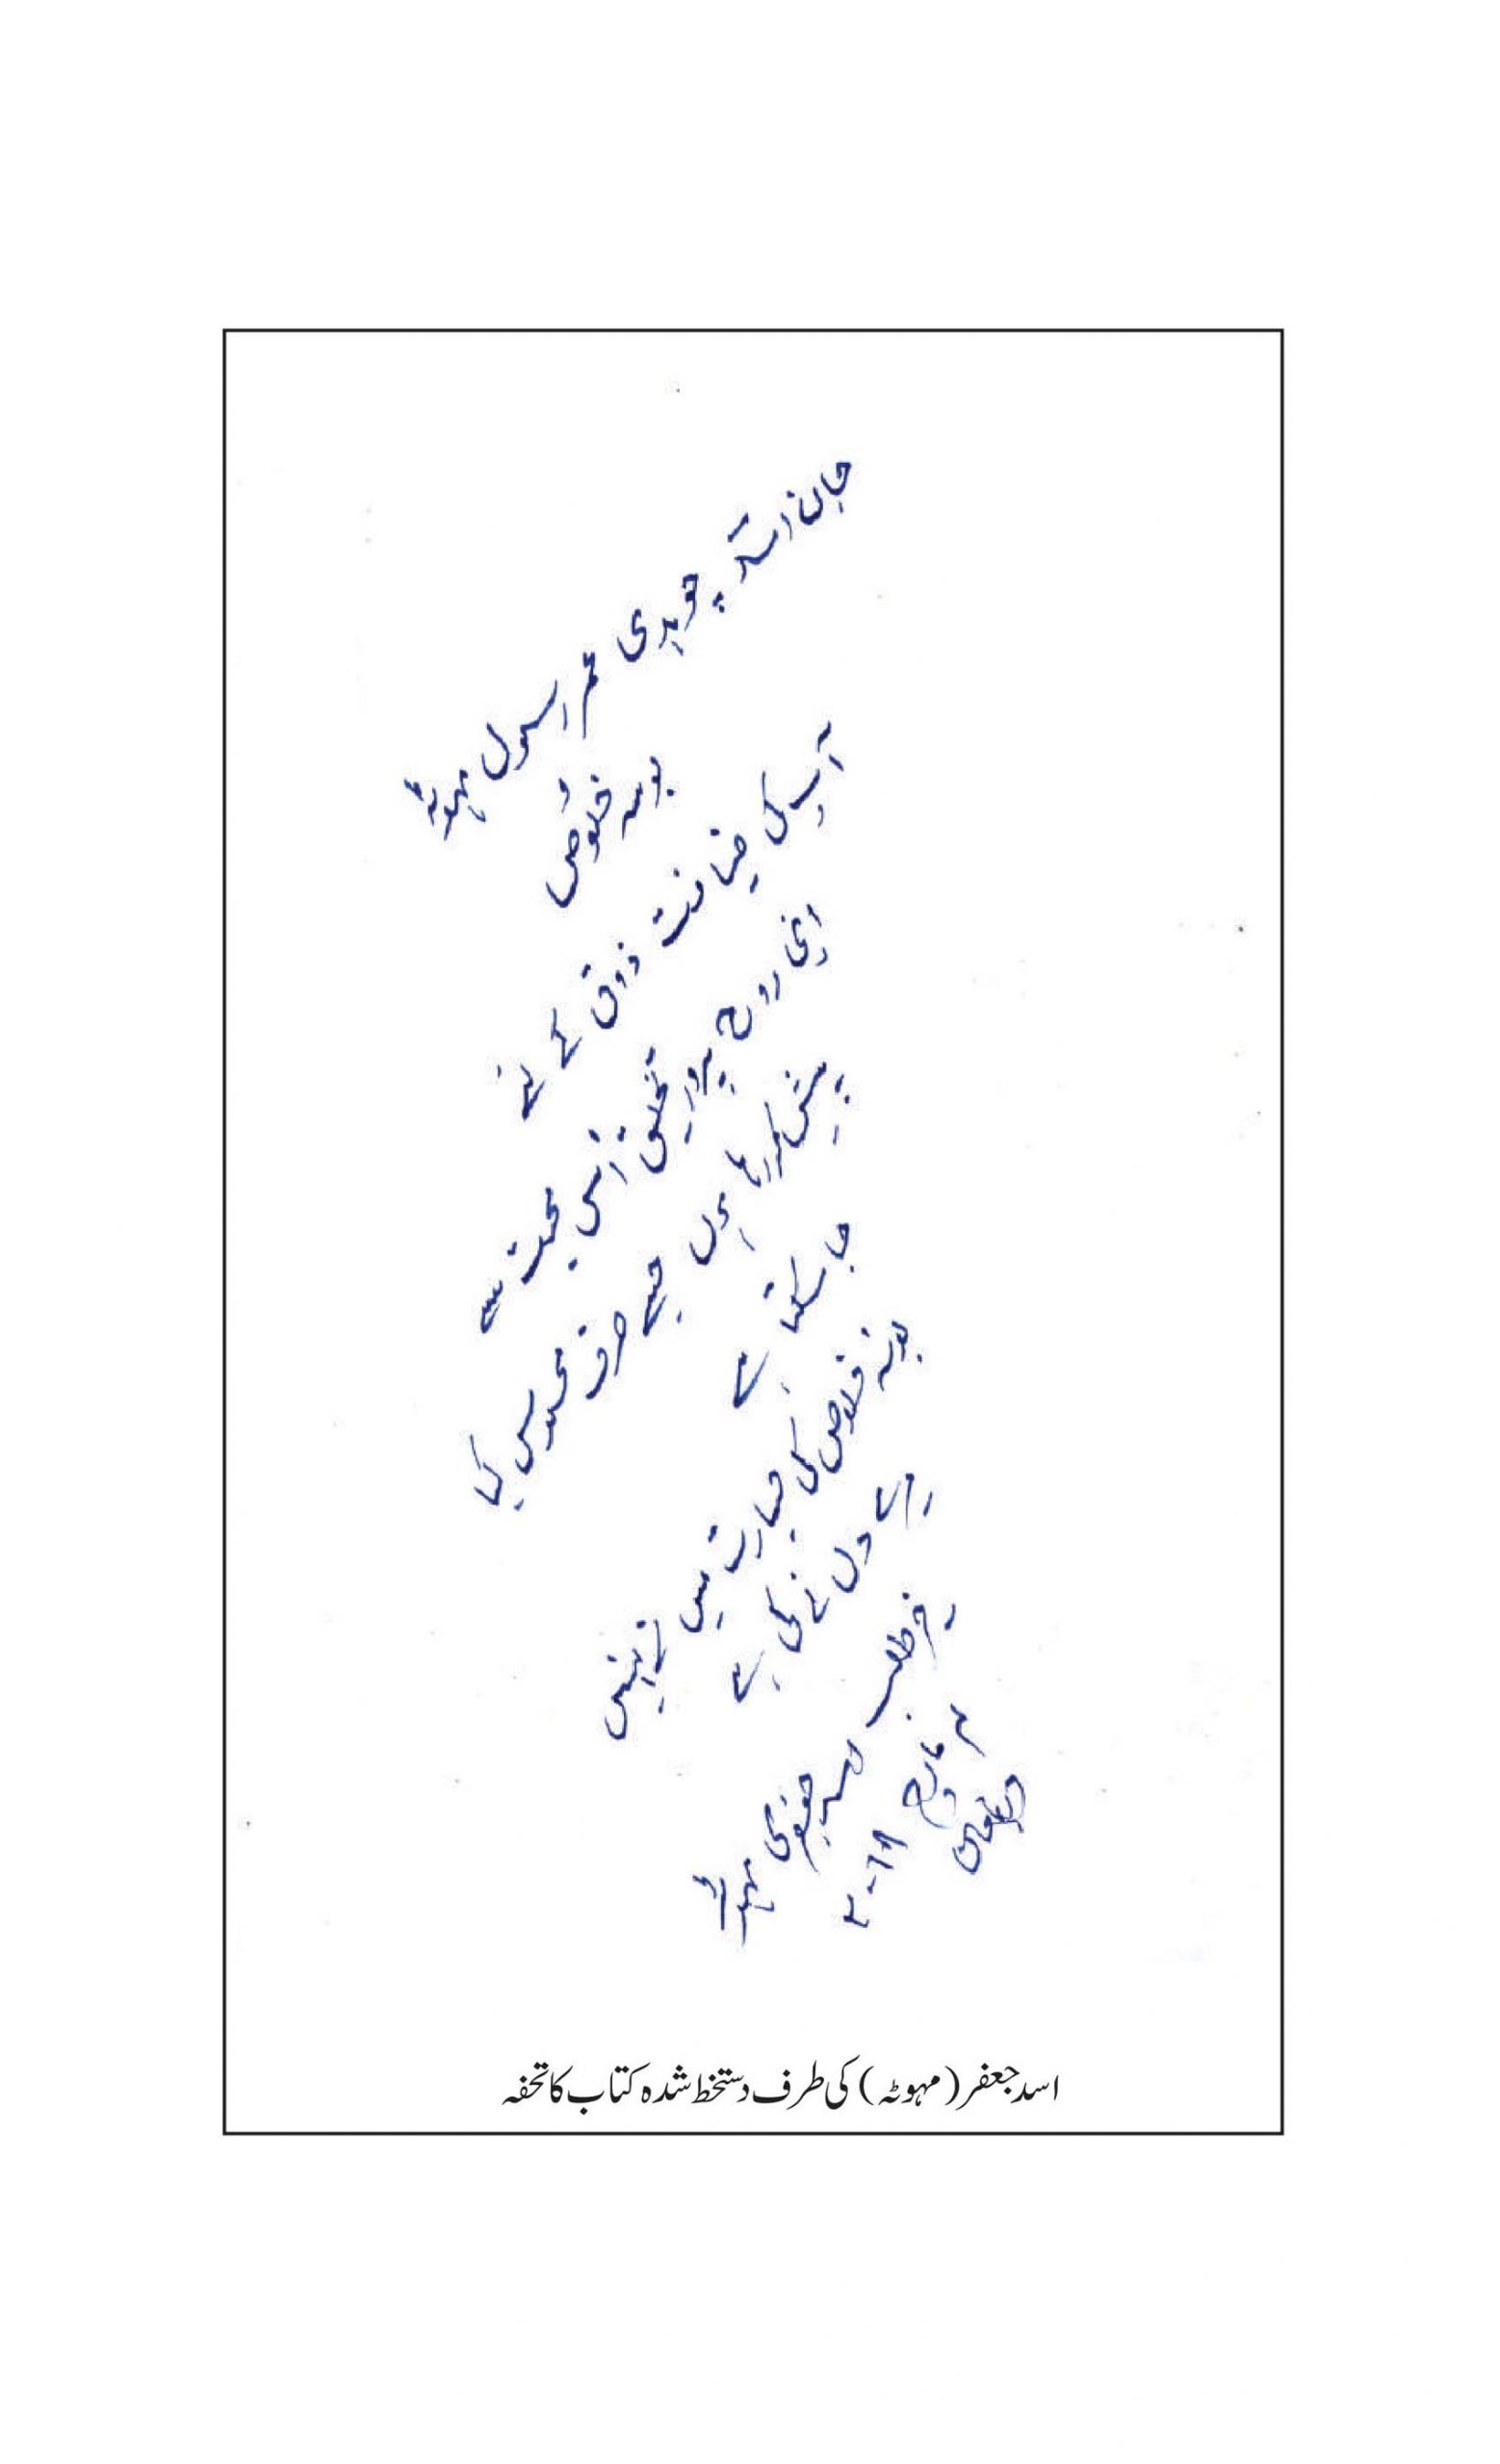 جانِ اسد چوہدری عمر رسول مہوٹہ
بوسہ خلوص
آپ کی ضیافت ذوق کے لئے
اپنی روح پرور تخلیق اس محبت سے
پیش کر رہا ہوں جسے صرف محسوس کیا
جا سکتا ہے
بوسہ خلوص کی جسارت میں نے نہیں
میرے دل نے کی ہے
خیر طلب
اسد جعفری مہوٹہ
مارچ ۲۰۱۹
اسد جعفر (مہوٹہ) کی طرف دستخط شدہ کتاب کا تحفہ